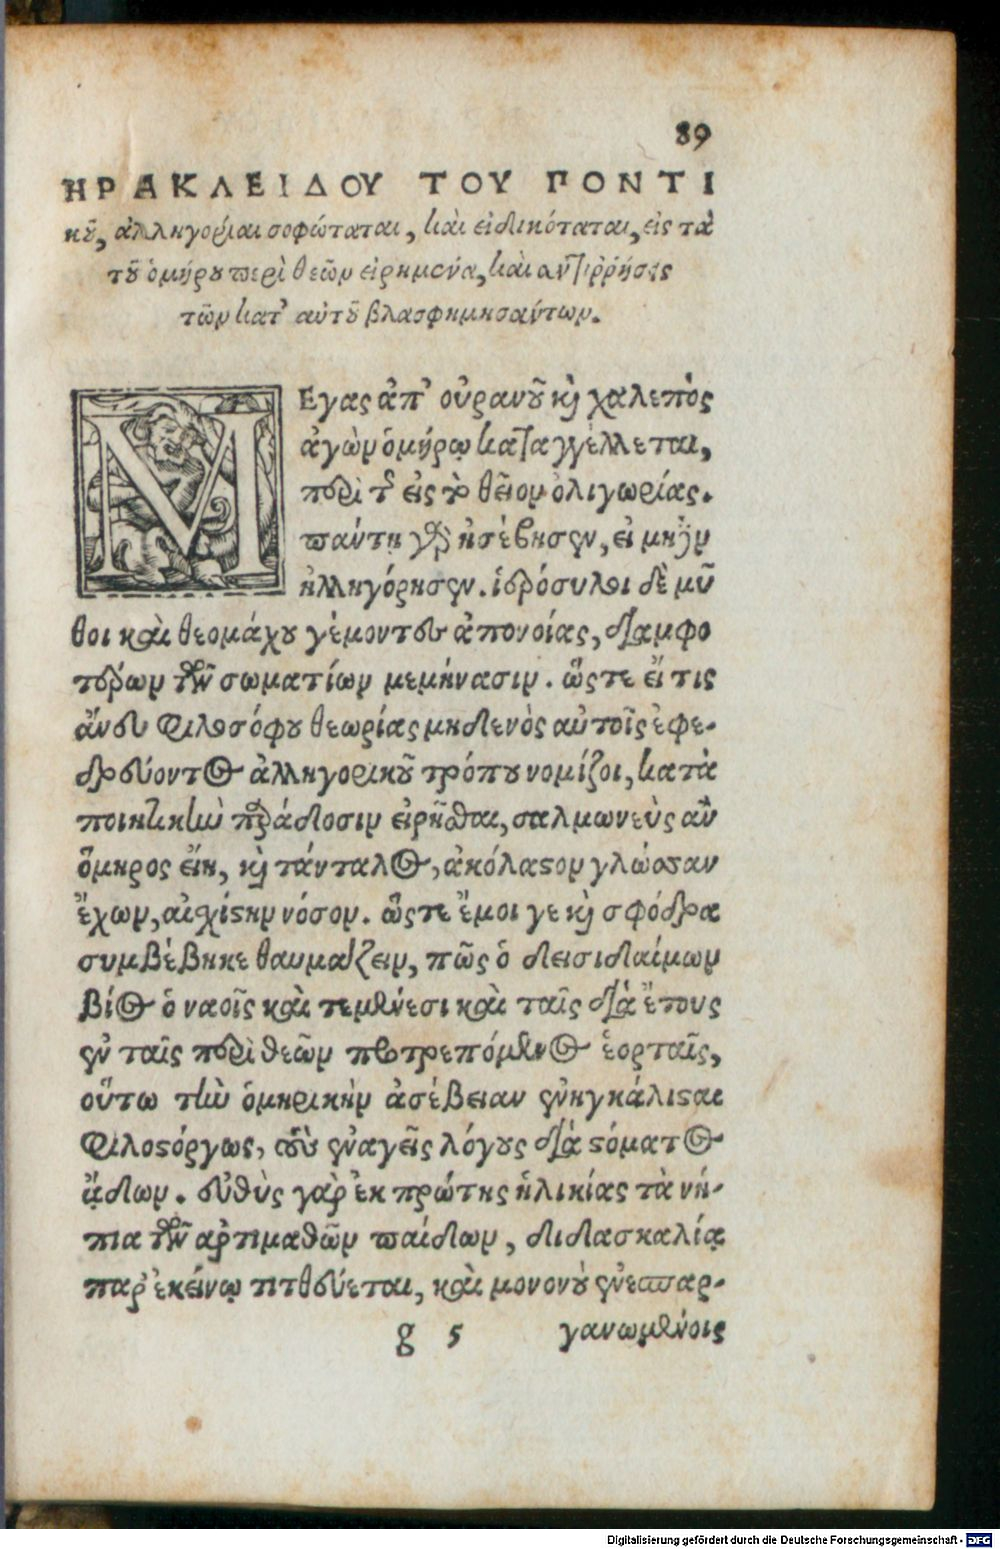 89
ΗΡΑΚΛΕΙΔΟΥ ΤΟΥ ΠΟΝΤΙ
κοῦ, ἀλληγορίαι σοφώταται, καὶ εἰδικόταται, εἰς τὰ
τοῦ ὁμήρου περὶ θεῶν εἰρημένα, καὶ ἀντίῤῥησις
τῶν κατ' αὐτοῦ βλασφημησάντων.
ΜΕγας ἀπ' οὐρανοῦ καὶ χαλεπὸς
ἀγὼν ὁμήρῳ καταγγέλλεται,
περὶ τῆς εἰς τὸ θεῖον ὀλιγωρίας.
πάντη γὰρ ἠσέβησεν, εἰ μηδὲν
ἠλληγόρησεν. ἱερόσυλοι δὲ μῦ
θοι καὶ θεομάχου γέμοντες ἀπονοίας, δι' ἀμφο
τέρων τῶν σωματίων μεμήνασιν. ὥστε εἴ τις
ἄνευ φιλοσόφου θεωρίας μηδενὸς αὐτοῖς ἐφε-
δρεύοντος ἀλληγορικοῦ τρόπου νομίζοι, κατὰ
ποιητικὴν παράδοσιν εἰρῆσθαι, σαλμωνεὺς ἂν
ὅμηρος εἴη, καὶ τάνταλος, ἀκόλαστον γλῶσσαν
ἔχων, αἰσχίστην νόσον. ὥστε ἔμοι γε καὶ σφόδρα
συμβέβηκε θαυμάζειν, πῶς ὁ δεισιδαίμων
βίος ὁ ναοῖς καὶ τεμένεσι καὶ ταῖς δι' ἔτους
ἐν ταῖς περὶ θεῶν προτρεπόμενος ἑορταῖς,
οὕτω τὴν ὁμηρικὴν ἀσέβειαν ἐνηγκάλισται
φιλοστόργως, τοὺς ἐναγεῖς λόγους διὰ στόματος
ᾄδων. εὐθὺς γὰρ ἐκ πρώτης ἡλικίας τὰ νή-
πια τῶν ἀρτιμαθῶν παίδων, διδασκαλίᾳ
παρ' ἐκείνῳ τιτθεύεται, καὶ μονονοὺ ἐνεσπαρ-
g 5 γανωμένοις
Digitalisierung gefördert durch die Deutsche Forschungsgemeinschaft - DFG